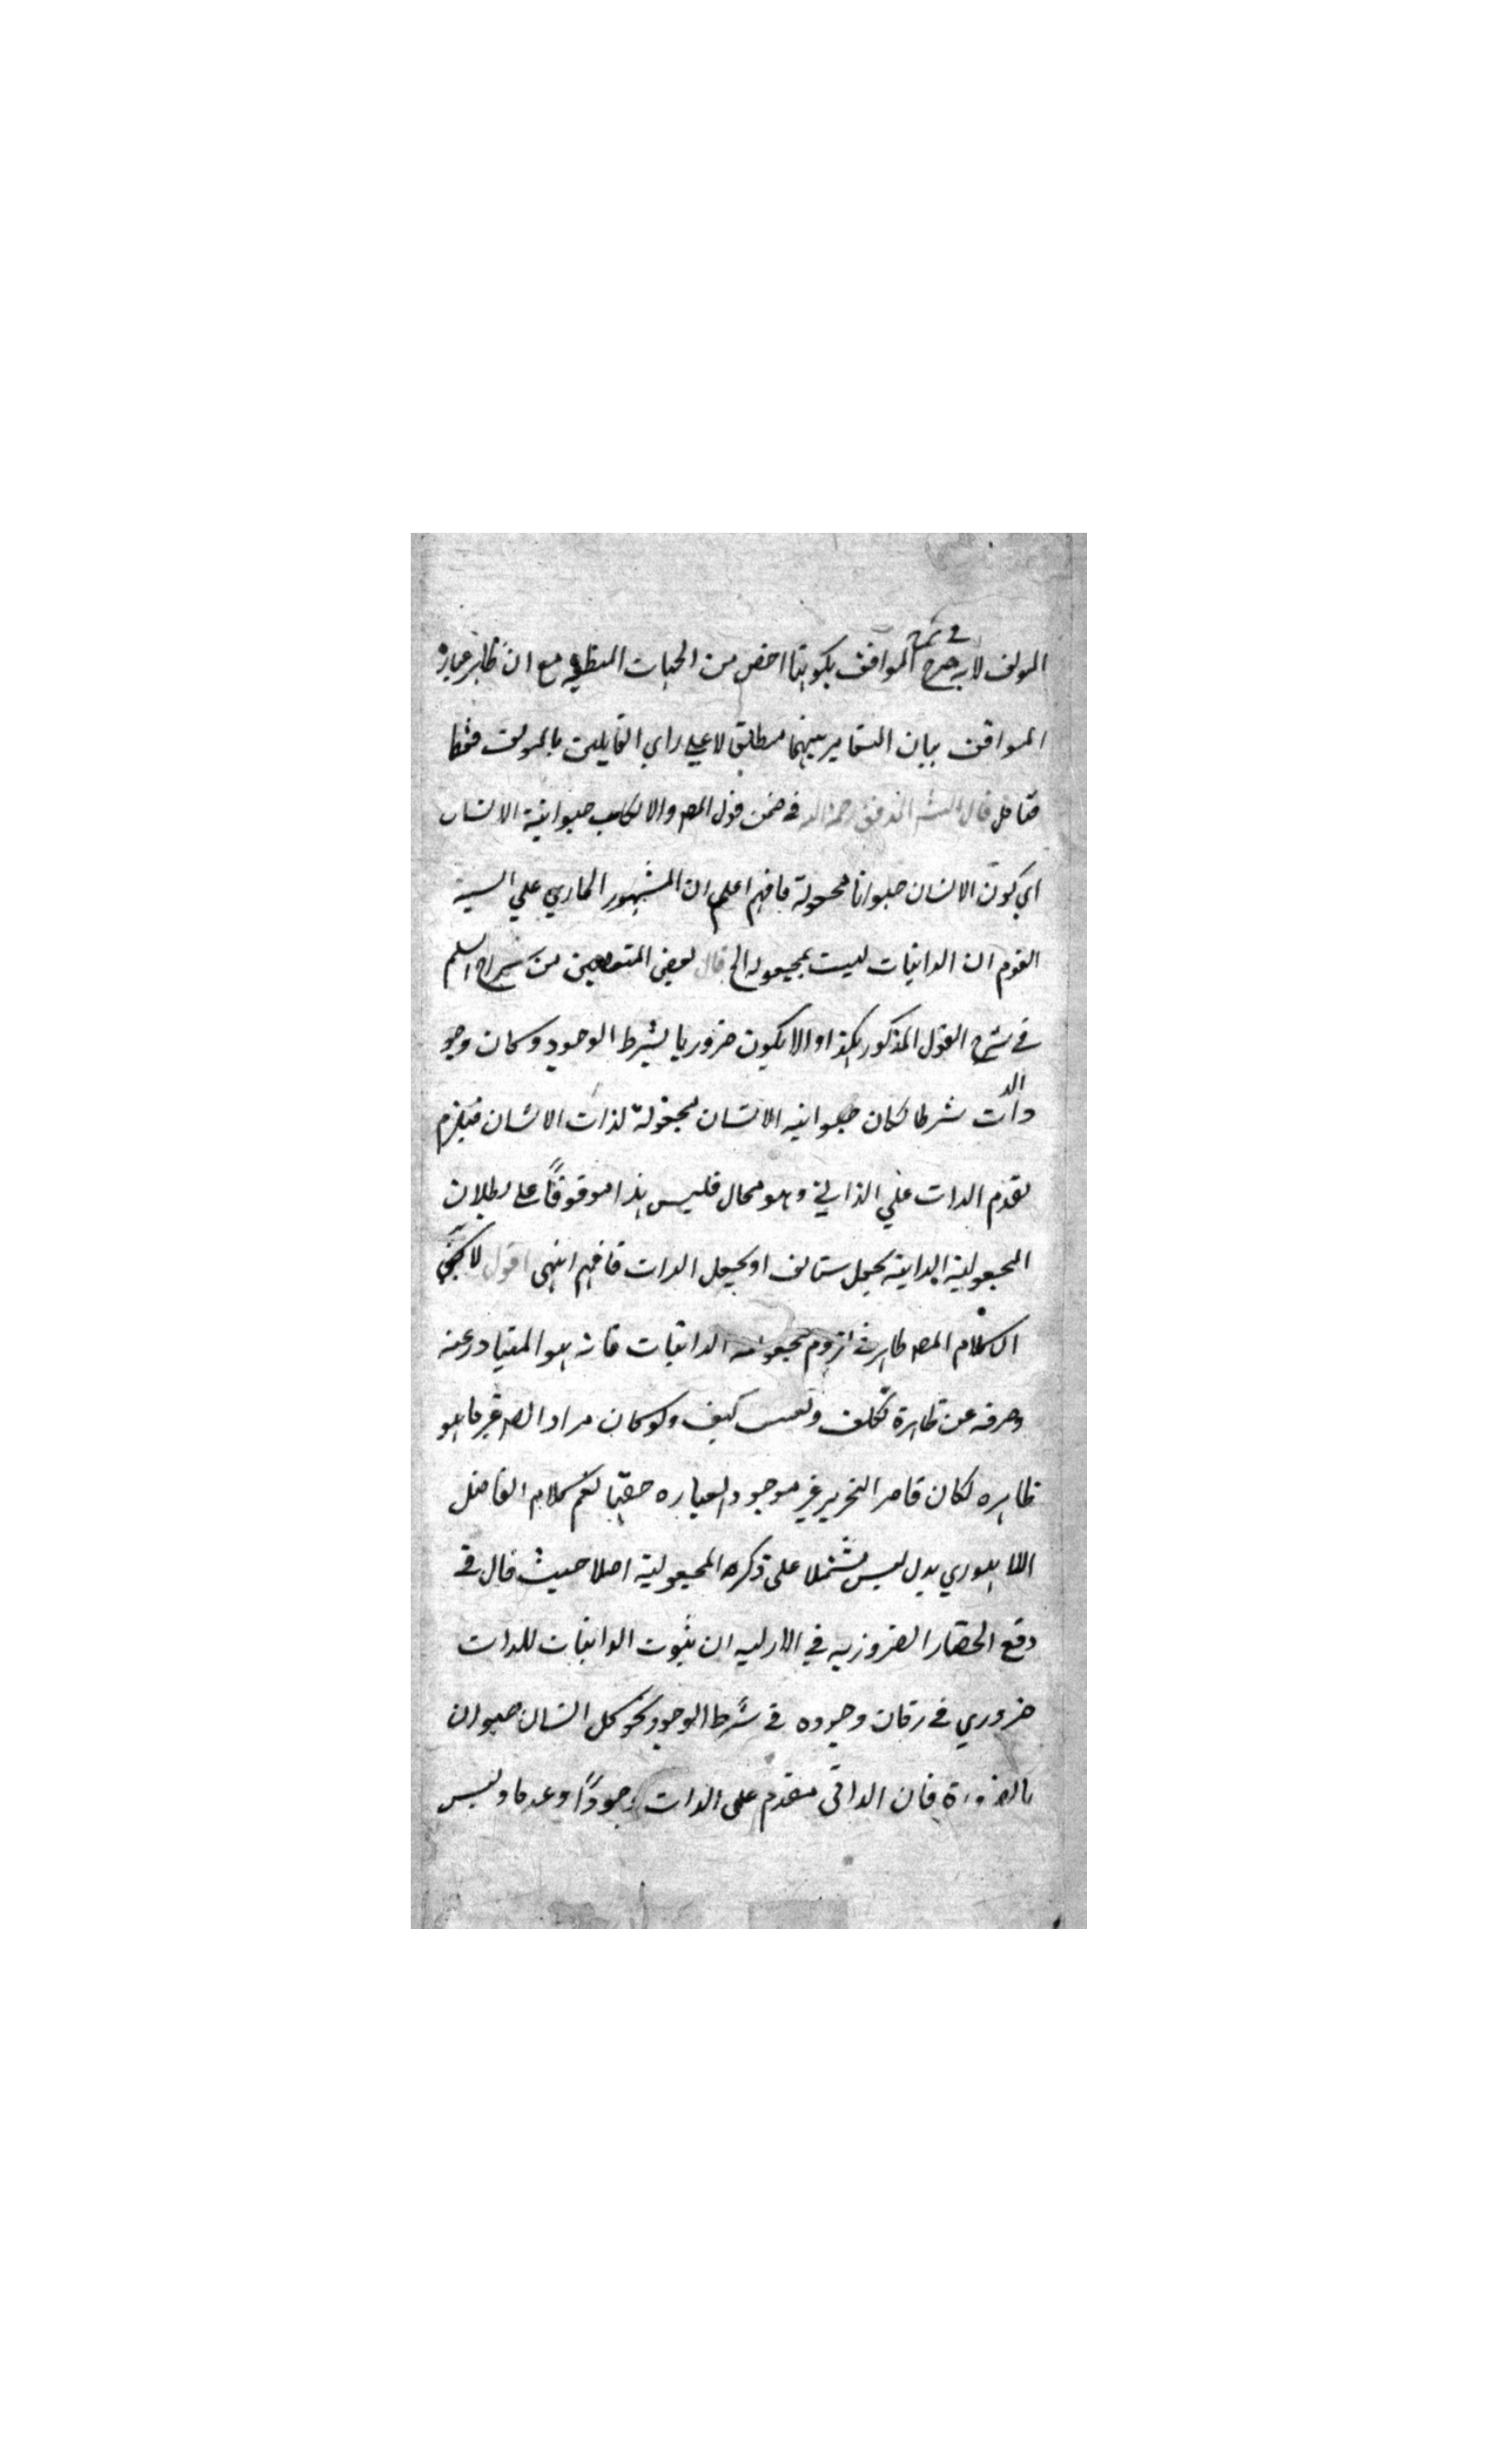 المولف لانه صرح في شرح المواقف بكونها اخص من الجهات المنطقيه مع ان ظاهر عبارة
المواقف بيان التغاير بينهما مطلقا لا علي راي القايلين بالمولف فقط
فتامل قال الشه المدقق رحمه الله في ضمن قول المصه والا لكانت حيوانية الانسان
اي كون الانسان حيوانا مجعولة فافهم اعلم ان المشهور الجاري علي السنة
القوم ان الذاتيات ليست بمجعوله الخ قال بعض المتعمقين من شراح السلم
في شرح القول المذكور هكذا والا يكون ضروريا بشرط الوجود وكان وجو
د الذات شرطا لكان حيوانيه الانسان مجعولة لذات الانسان فيلزم
تقدم الذات علي الذاتي وهو محال فليس هذا موقوفا على بطلان
المجعولية الذاتية بجعل مستانف او بجعل الذات فافهم انتهى اقول لا يخفى
ان كلام المصه ظاهر في لزوم مجعولية الذاتيات فانه هو المتبادر عنه
وصرفه عن ظاهرة تكلف وتعسف كيف ولو كان مراد المصه غير ما هو
ظاهره لكان قاصر التحرير غير موجود العباره حقيقا نعم كلام الفاضل
اللاهوري يدل ليس مشتملا على ذكره المجعولية اصلا حيث قال في
دفع انحصار الضروريه في الازليه ان ثبوت الذاتيات للذات
ضروري في زمان وجوده في شرط الوجود نحو كل انسان حيوان
بالضرورة فان الذاتي متقدم على الذات وجودًا وعدما وليس